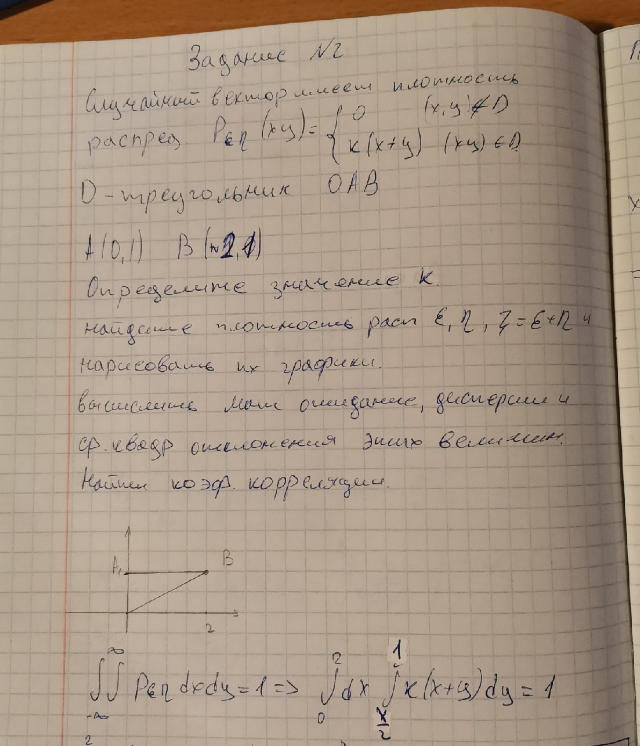 Задание №2
Случайный вектор имеет плотность
распред. Pεη(xy) = { 0 (x,y) ∉ D
k(x+y) (xy) ∈ D
D - треугольник OAB
A(0,1) B(2,1)
Определите значение k.
найдите плотность расп ε, η, ζ = ε+η и
нарисовать их графики.
вычислить мат ожидание, дисперсии и
ср. квадр отклонения этих величин.
Найти коэф. корреляции.
A, B
2
∞
∫∫ Pεη dxdy = 1 => ∫ dx ∫ k(x+y) dy = 1
-∞ 0 2 x/2 1
2